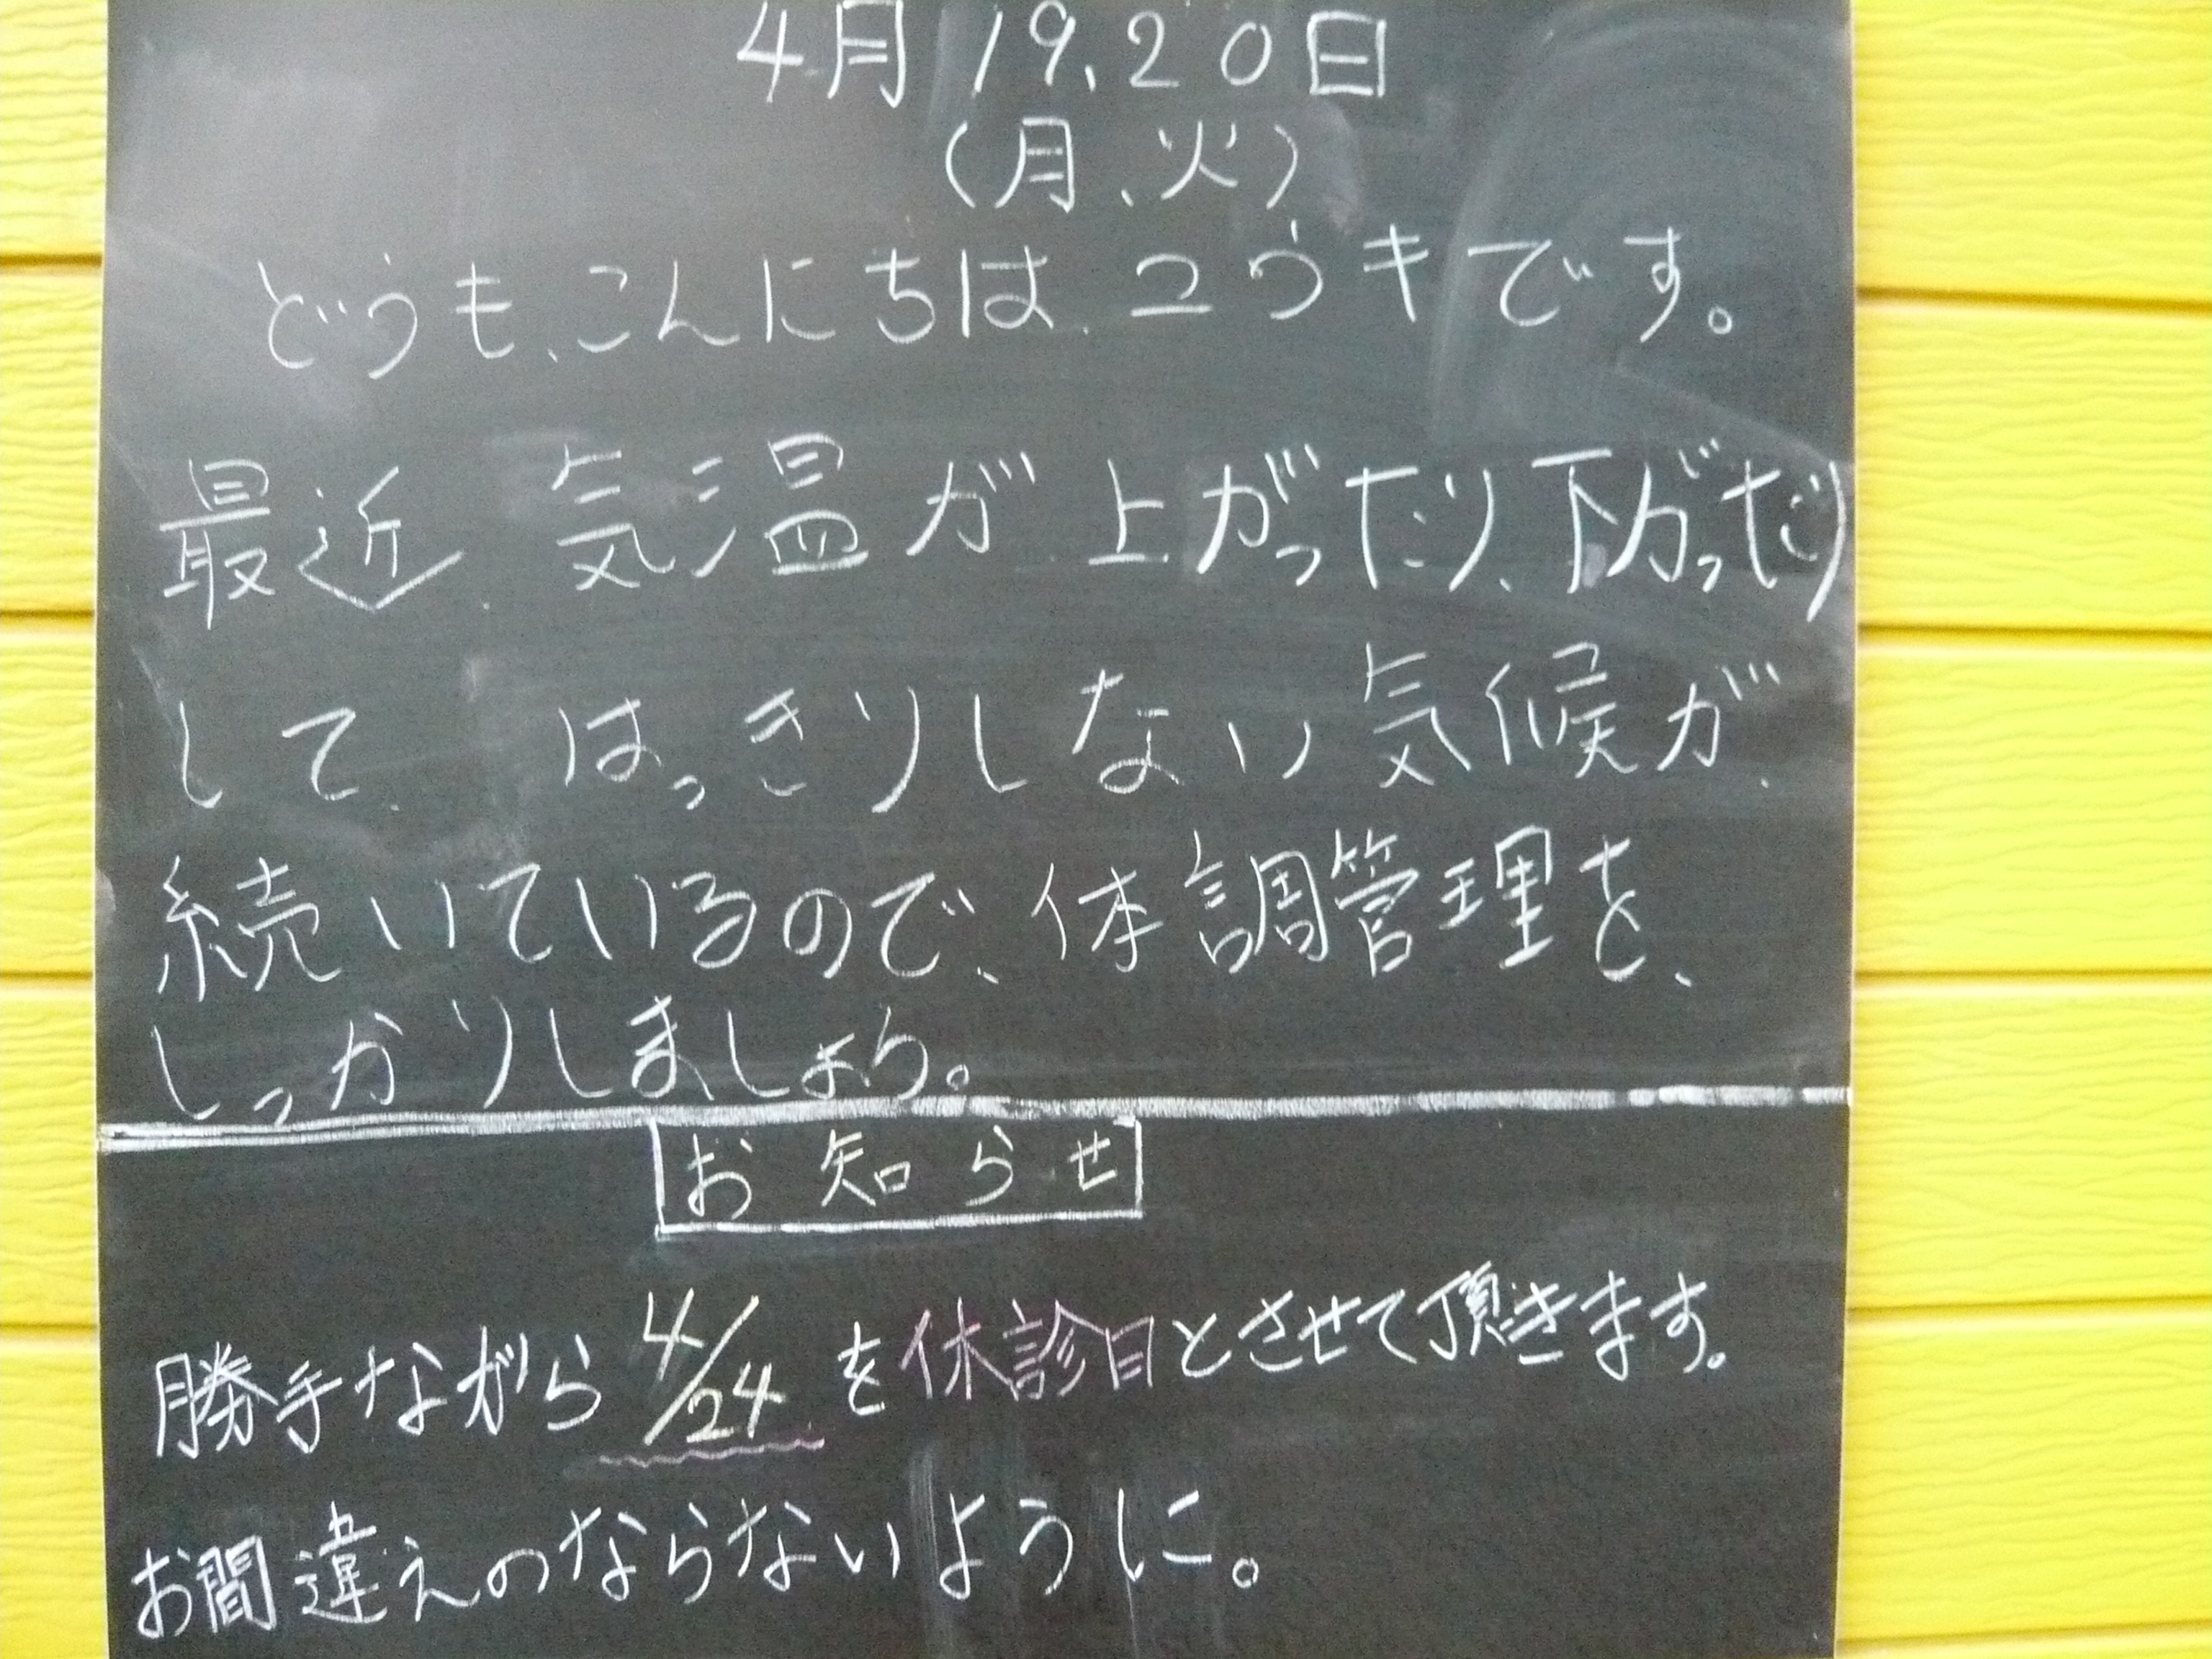 4月19、20日
（月、火）
どうも、こんにちは、ユウキです。
最近、気温が上がったり、下がっだり
して、はっきりしない気候が、
続いているので、体調管理を、
しっかりしましょう。
お知らせ
勝手ながら4/24を休診日とさせて頂きます。
お間違えのならないように。